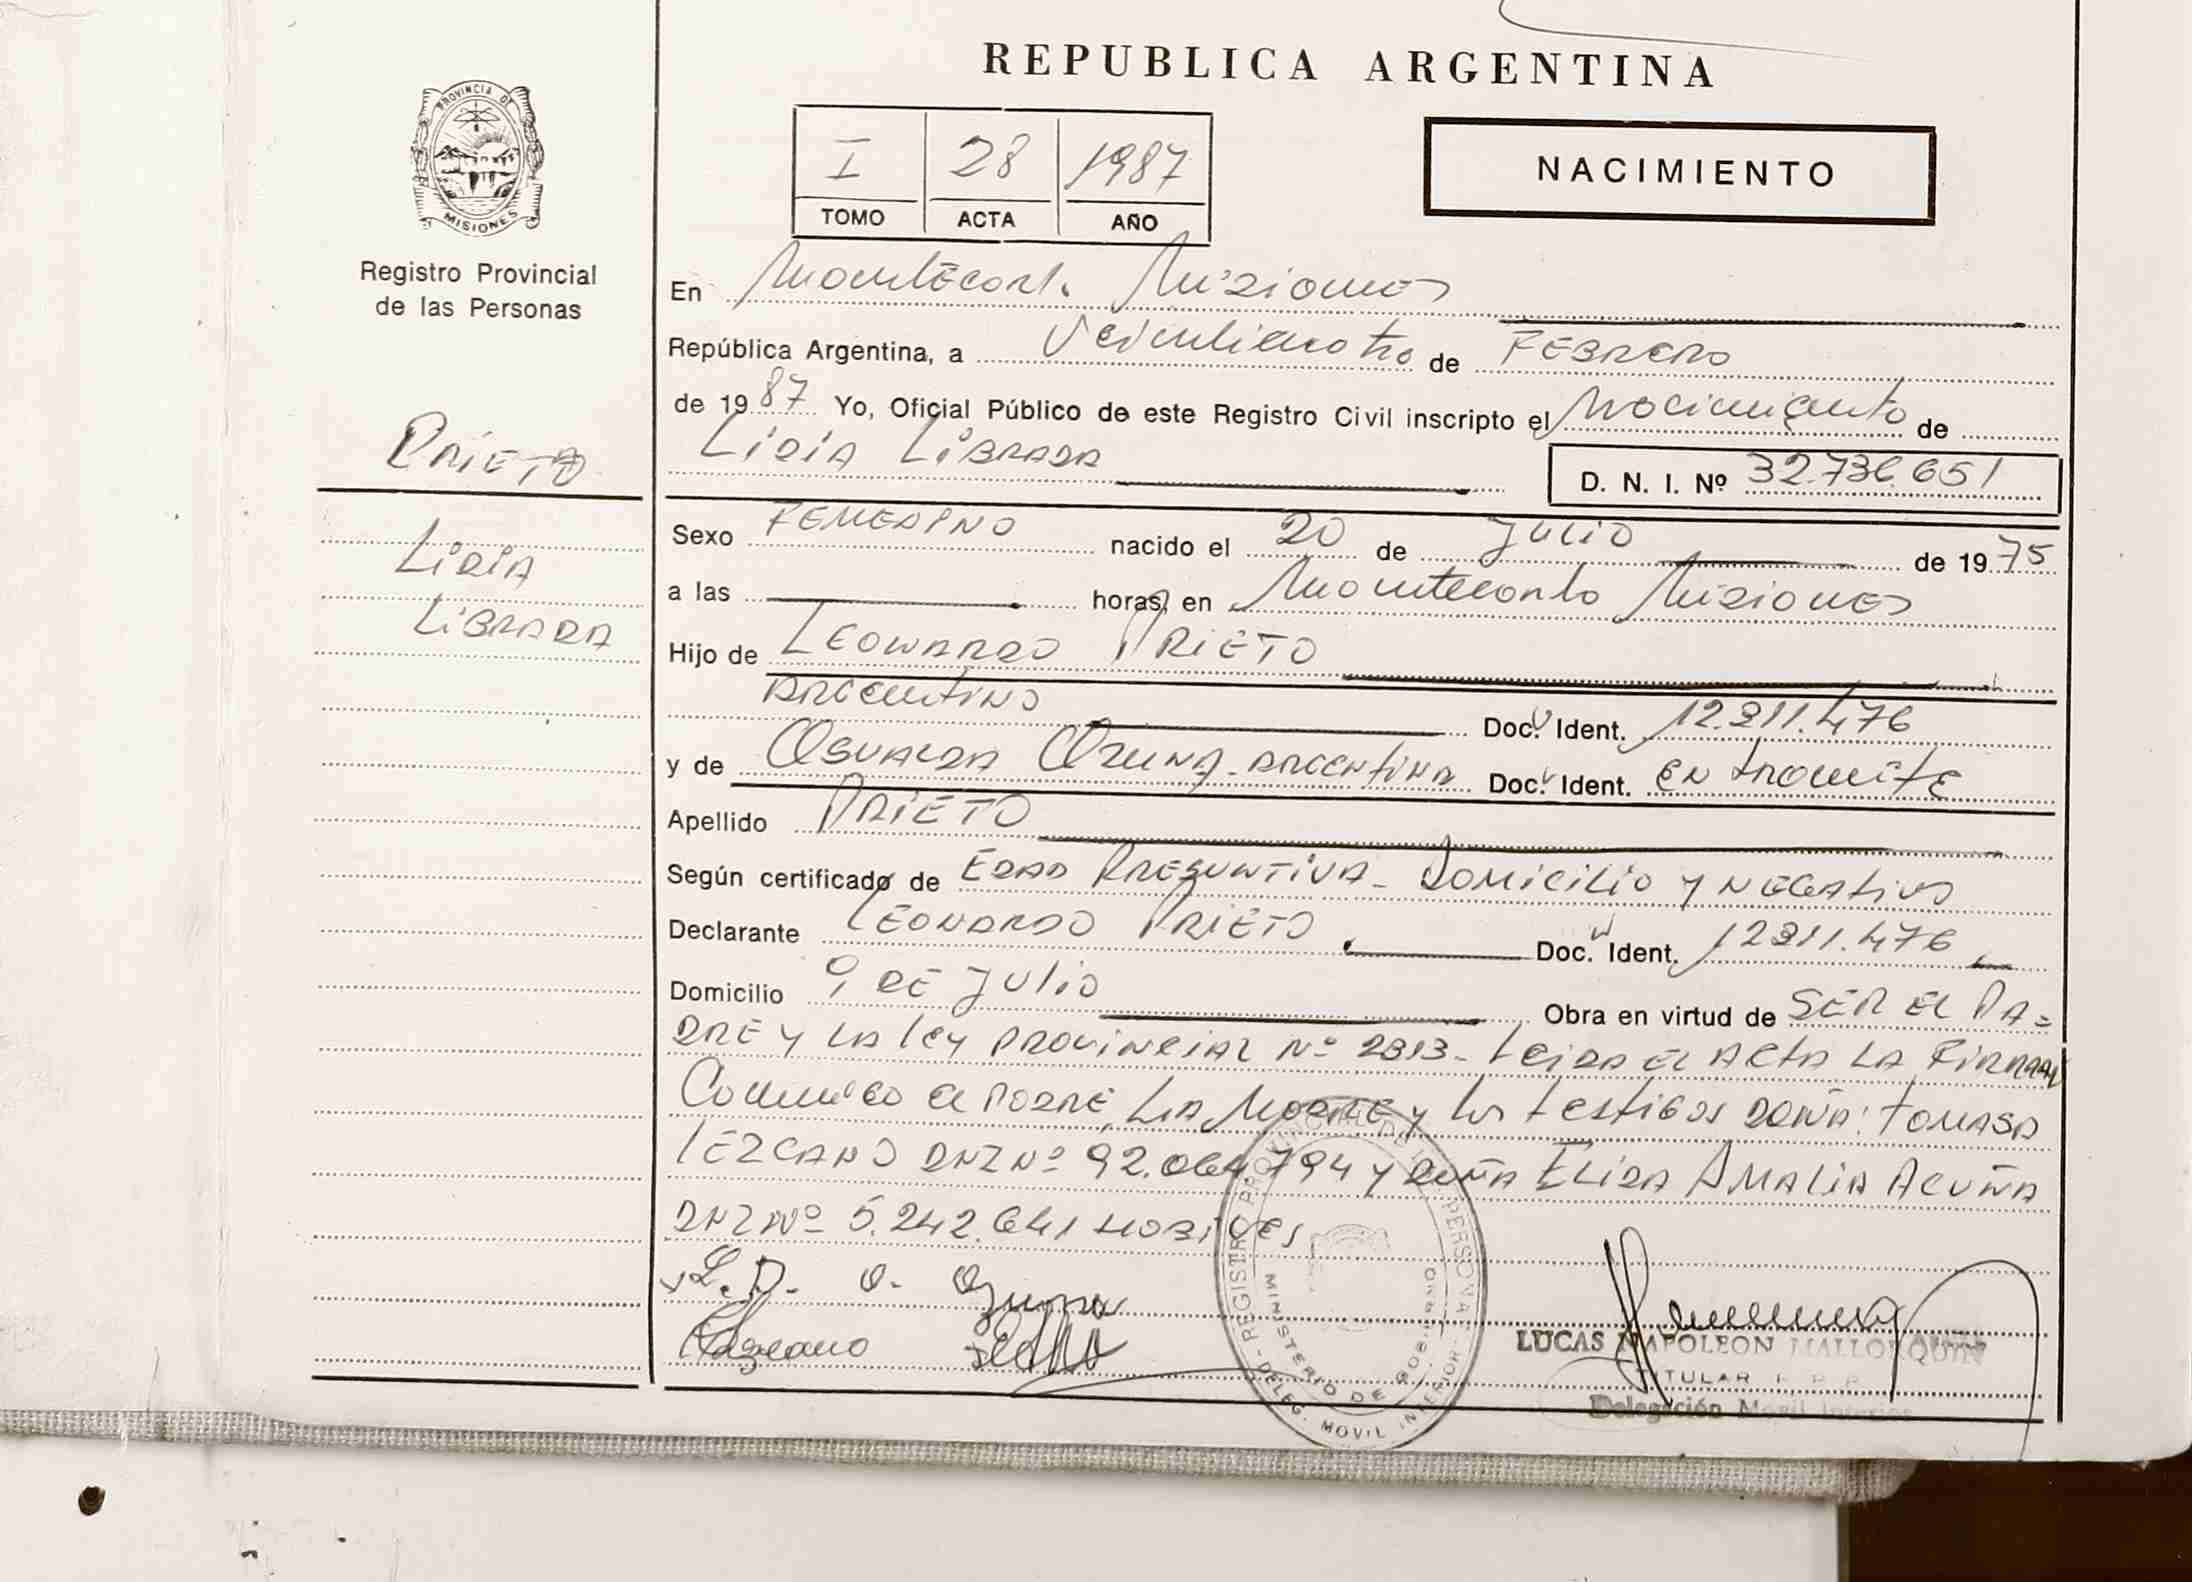 REPUBLICA ARGENTINA
PROVINCIA DE
MISIONES
Registro Provincial
de las Personas
I 28 1987
TOMO ACTA AÑO
NACIMIENTO
En Montecarlo Misiones
República Argentina, a Veinticuatro de FEBRERO
de 1987 Yo, Oficial Público de este Registro Civil inscripto el Nacimiento de
LiDiA LiBRADA
D. N. I. Nº 32.736.651
PRiETO
LiDiA
LiBRADA
Sexo FEMEDINO nacido el 20 de Julio de 1975
a las horas, en Montecarlo Misiones
Hijo de LEONARDO PRiETO
ARGENTINO Doc. Ident. 12.311.476
y de OSVALDA OZUNA - ARGENTINA Doc. Ident. EN tramite
Apellido PRiETO
Según certificado de EDAD PRESUNTIVA - DOMICILIO Y NEGATIVO
Declarante LEONARDO PRiETO Doc. Ident. 12311.476
Domicilio 9 DE JULIO Obra en virtud de SER EL PA=
DRE Y LA ley PROVINCIAL Nº 2313 - LEIDA EL ACTA LA FIRMAN
Conmigo el PADRE, LA MADRE y los testigos DOÑA: TOMASA
LEZCANO DNI Nº 92.064.794 y DOÑA ELIDA AMALIA ACUÑA
DNI Nº 5.242.641 HOBILES
L.P. O. Ozuna
Lezcano
REGISTRO PROVINCIAL DE LAS PERSONAS
MINISTERIO DE GOBIERNO
DELEG. MOVIL INTERIOR
LUCAS NAPOLEON MALLORQUIN
TITULAR R. P. P.
Delegación Movil Interior